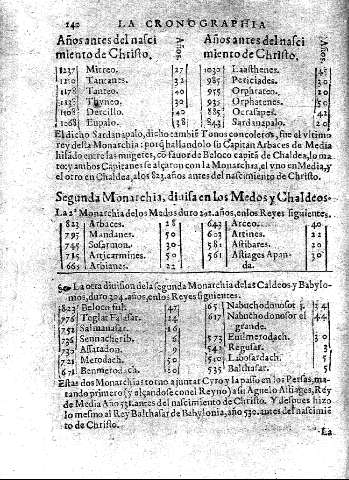 140 LA CRONOGRAPHIA
Años antes del nasci
miento de Christo.
Años
1237 Mitreo. 27
1210 Tantanes. 32
1178 Tauteo. 40
1138 Thyneo. 30
1108 Dercillo. 40
1068 Eupalo. 38
Años antes del nasci
miento de Christo.
Años
1030 Laasthenes. 45
985 Peticiades. 30
955 Ophrateo. 20
935 Ophratenes. 50
885 Ocrasapes. 42
843 Sardanapalo. 20
El dicho Sardanapalo, dicho tambiẽ Tonos concoleros, fue el vltimo
rey della Monarchia: porq̃ hallando su Capitan Arbaces de Media
hilado entre las mugeres, cõ fauor de Beloco capitã de Chaldea, lo ma
to; y ambos Capitanes se alçaron con la Monarchia, el vno en Media, y
el otro en Chaldea, a los 823. años antes del nascimiento de Christo.
Segunda Monarchia, diuisa en los Medos y Chaldeos.
La 2ª Monarchia de los Medos duro 292. años, en los Reyes siguientes.
823 Arbaces. 28
795 Mandanes. 50
745 Sosarmon. 30
715 Articarmines. 50
665 Arbianes. 22
643 Arceo. 40
603 Artines. 22
581 Astibares. 20
561 Astiages Apan-
da. 30
La otra diuision de la segunda Monarchia de las Caldeos y Babylo
mos, duro 304. años, en los Reyes siguientes.
823 Beloco ful. 47
776 Teglat Falasar. 24
752 Salmanasar. 16
736 Sennacherib. 6
730 Assaradon. 9
721 Merodach. 50
671 Benmerodach.
Nabuchodonosor j. 24
617 Nabuchodonosor el
grande.
573 Euilmerodach. 30
542 Regusar. 3
Labosardach. 5
535 Balthasar. 5
Estas dos Monarchias torno a juntar Cyro y la passo en los Persas, ma-
tando primero (y alçandose con el Reyno) a su Aguelo Astiages, Rey
de Media Año 531. antes del nascimiento de Christo. Y despues hizo
lo mesmo al Rey Balthasar de Babylonia, año 530. antes del nascimiẽ
to de Christo.
La